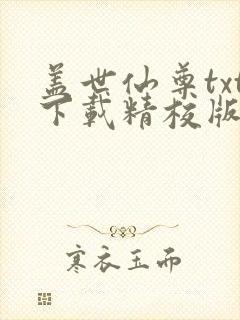 盖世仙尊txt
下载精校版
寒衣玉而